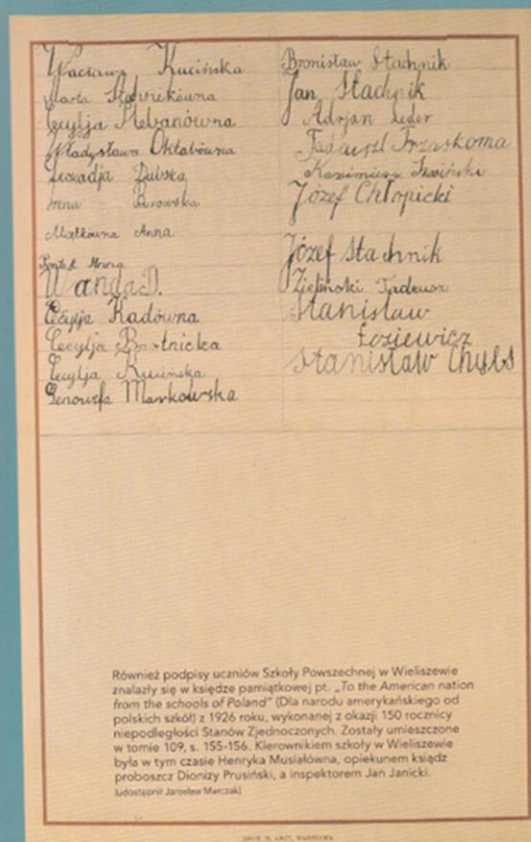 Wacława Kucińska
Marta
Cecylja Plebanówna
Władysława
Leokadja Dubska
Anna
Małkówna Anna
Wanda D.
Cecylja Kadówna
Cecylja
Cecylja Kucińska
Genowefa Markowska
Bronisław Stachnik
Jan Stachnik
Adrjan Leder
Tadeusz Trzaskoma
Kazimierz
Józef Chłopicki
Józef Stachnik
Zieliński Tadeusz
Stanisław
Łoziewicz
Stanisław
Również podpisy uczniów Szkoły Powszechnej w Wieliszewie
znalazły się w księdze pamiątkowej pt. „To the American nation
from the schools of Poland” (Dla narodu amerykańskiego od
polskich szkół) z 1926 roku, wykonanej z okazji 150 rocznicy
niepodległości Stanów Zjednoczonych. Zostały umieszczone
w tomie 109, s. 155-156. Kierownikiem szkoły w Wieliszewie
była w tym czasie Henryka Musiałówna, opiekunem ksiądz
proboszcz Dionizy Prusiński, a inspektorem Jan Janicki.
[udostępnił Jarosław Marczak]
DRUK. M. ARCT, WARSZAWA